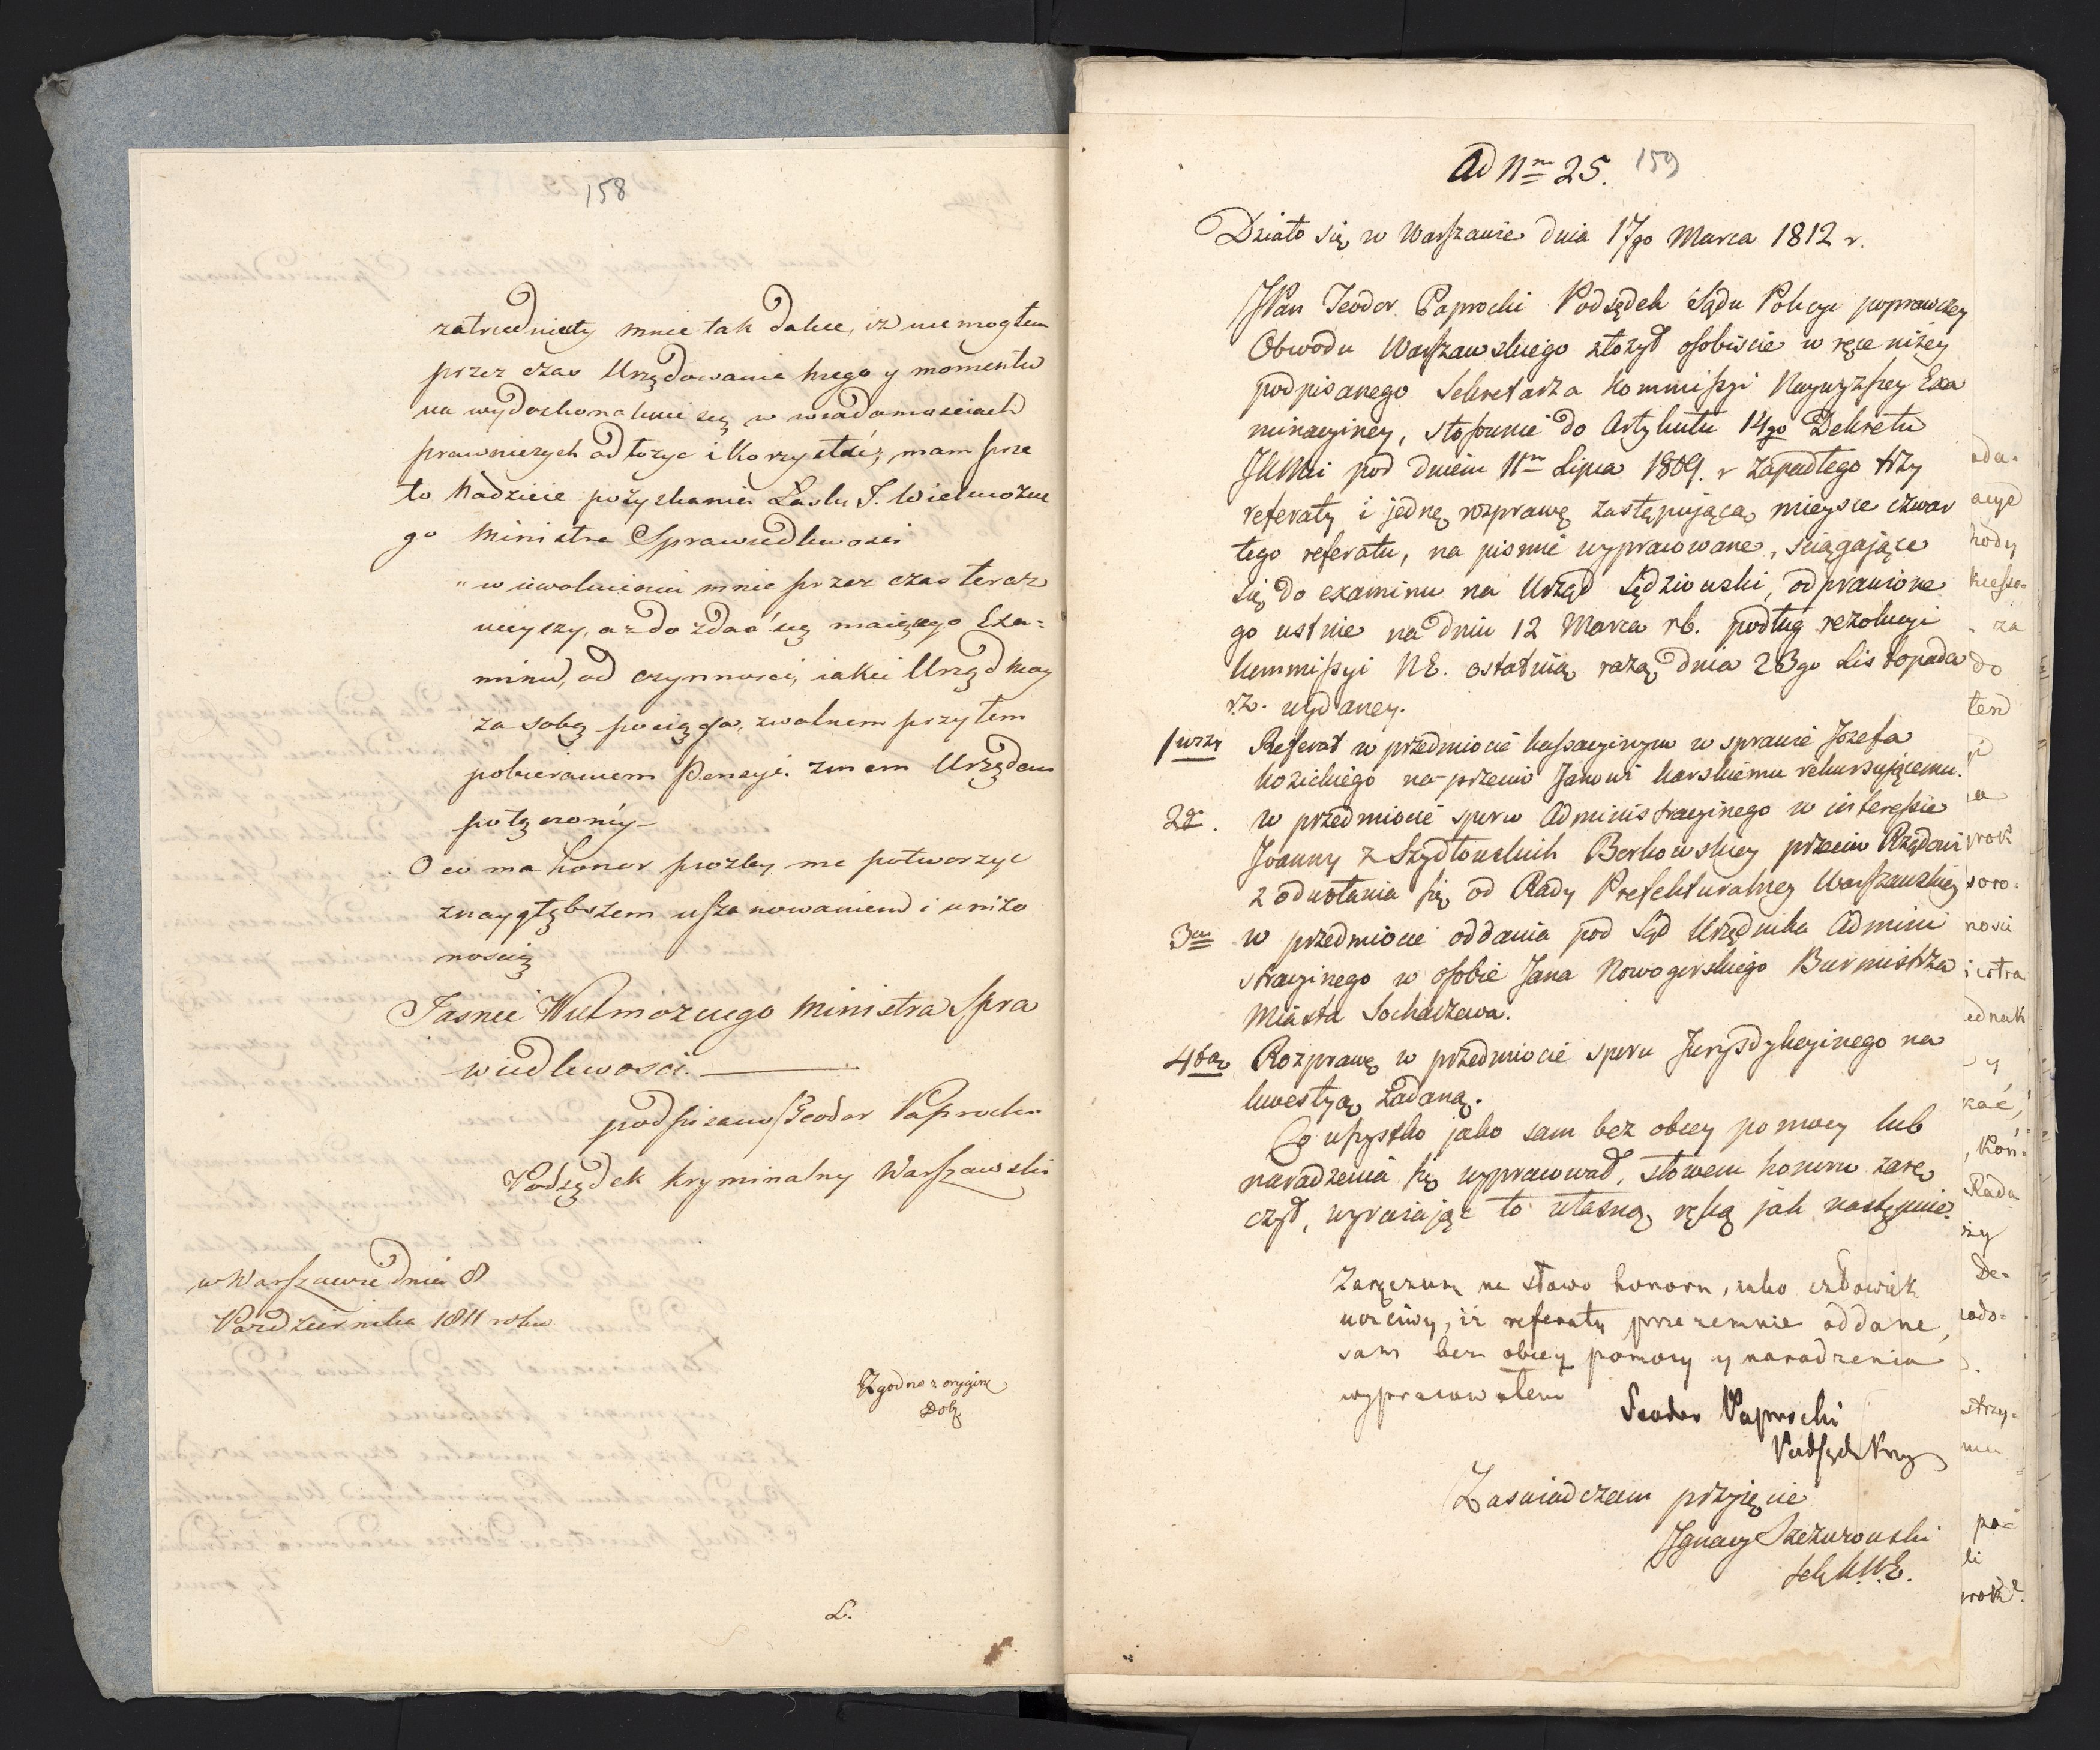 158
zatrudniały mnie tak dalece, iż nie mogłem
przez czas Urzędowania mego y momentu
na wydoskonalenie się w wiadomościach
prawniczych odłożyć i korzystać, mam prze
to Nadzieię pozyskania Łaski J. Wielmożne
go Ministra Sprawiedliwości
" w uwolnieniu mnie przez czas teraz
nieyszy, aż do zdać się maiącego Exa=
minu, od czynności, iakie Urząd moy
za sobą pociąga, zwolnem przytem
pobieraniem Pensyi z mem Urzędem
połączoney
O co ma honor prozby me powtorzyć
z naygłębszem uszanowaniem i uniżo
nością
Jasnie Wielmożnego Ministra Spra
wiedliwości.
podpisano Teodor Paprocki
Podsędek kryminalny Warszawski
w Warszawie dnia 8
Pazdziernika 1811 roku
Zgodno z orygin
L.
Ad Nrm 25. 159
Działo się w Warszawie dnia 17go Marca 1812 r.
JPan Teodor Paprocki Podsędek Sądu Policyi poprawczey
Obwodu Warszawskiego złożył osobiście w ręce niżey
podpisanego Sekretarza Kommissyi Naywyższey Exa
minacyiney, stosownie do Artykułu 14go Dekretu
JKMci pod dniem 11m Lipca 1809. r zapadłego trzy
referaty i jednę rozprawę zastępującą mieysce czwar
tego referatu, na pismie wypracowane, sciągające
się do examinu na Urząd Sędziowski, odprawione
go ustnie na dniu 12 Marca rb. podług rezolucyi
Kommissyi NE. ostatnią razą dnia 23go Listopada
r.z. wydaney.
1wszy Referat w przedmiocie kassacyinym w sprawie Józefa
Kozickiego na-przeciw Janowi Karskiemu rekursującemu.
2gi. w przedmiocie sporu Administracyinego w interessie
Joanny z Szydłowskich Borkowskiey przeciw Rządowi
z odwołania się od Rady Prefekturalney Warszawskiey
3ci w przedmiocie oddania pod Sąd Urzędnika Admini
stracyinego w osobie Jana Nowogorskiego Burmistrza
Miasta Sochaczewa.
4tą Rozprawę w przedmiocie sporu Jurysdykcyinego na
kwestyą zadaną.
Co wszystko jako sam bez obcey pomocy lub
naradzenia się wypracował, słowem honoru zarę
czył, wyrażając to własną ręką jak następuie.
Zaręczam na słowo honoru, iako człowiek
uczciwy, iż referatu przezemnie oddane,
sam bez obcey pomocy y naradzenia
wypracowałem
Teodor Paprocki
Podsędk Kry
Zaswiadczam przyięcie
Ignacy Szczurowski
Sek K.N.E.
oda-
acyd
hody
za
do
ten
prok
soro-
nosci
istra
ednak
y
kać,
, Kon-
Rada
De-
rado-
strzy-
mu
po-
li
rok?